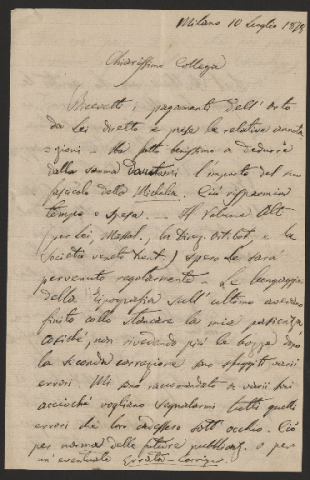 Milano 10 Luglio 1878
Chiarissimo Collega
Ricevetti i pagamenti dell'Orto
da Lei diretto e presi la relativa annota
=zione. Ha fatto benissimo a dedurre
dalla somma l'importo del suo
fascicolo della Michelia. Ciò risparmia
tempo e spesa. Il Volume
(per Lei, Massal., la Direz. Ort. bot. e la
Società veneto trent.) spero le sarà
pervenuto regolarmente. Le lungaggini
della tipografia sull'ultimo avevano
finito collo stancare la mia pazienza,
cosichè, non rivedendo più le bozze dopo
la seconda correzione sono sfuggiti varii
errori. Mi sono raccomandato a varii
acciocchè vogliano segnalarmi tutti quelli
errori che loro cadessero sott'occhio. Ciò
per norma delle future pubblicaz. o per
un' eventuale Errata-corrige